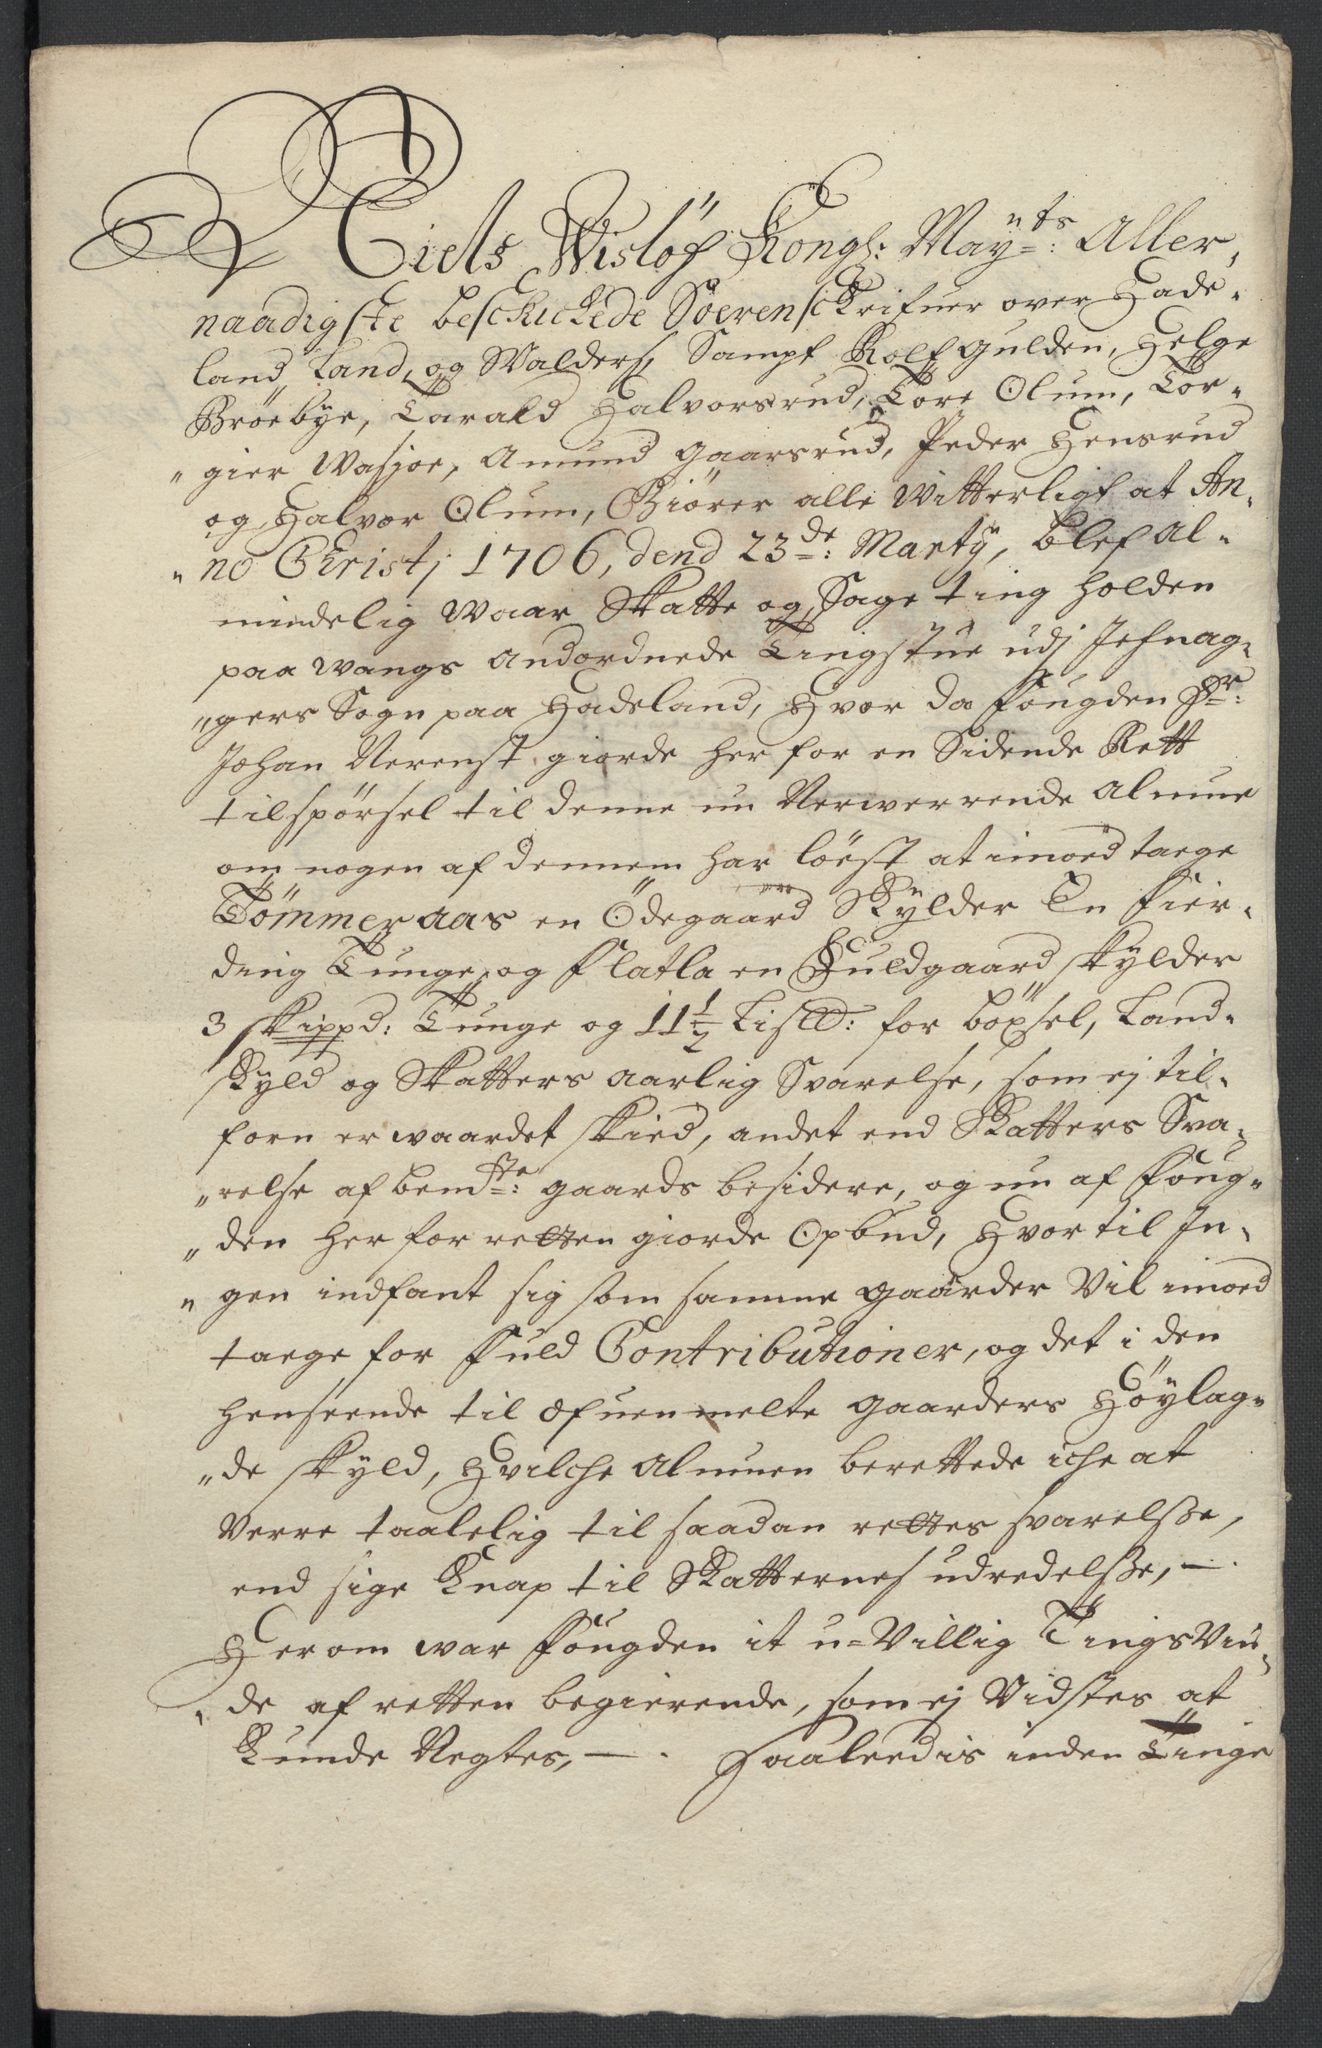 Niels Wislöf Kongl: May:nts: Aller,
naadigste beschickede Soerenschrifuer over Hade-
land, Land, og Walders, Sampt Rolf Gulden, Helge
Bröebye, Tarald Halvorsrud, Tore Olum, Tor-
„gier Wasjoe, Amund Gaarsrud, Peder Hensrud
og Halvor Olum, Giörer alle Witterligt at An-
„no Christj 1706, dend 23de: Martÿ, blef al-
mindelig Waar Skatte og Sage ting holden
paa Wangs Andordnede Tingstue udj Jefnag-
„gers Sogn paa Hadeland, Hvor da Fougden Sr:
Johan Nerenst giorde her for en Sidende Rett
tilspörsel til denne nu Nerwerrende Almue
om nogen af dennem har löest at imod taege
Tömmeraas en Ödegaard Skÿlder En Fier-
ding Tunge, og Flatla en Fuldgaard skÿlder
3 skippd: Tunge og 11½ Lispd: for böxsel, Land-
skÿld og Skatters aarlig Svarelse, som ej til-
forn er waardet skied, andet end Skatters Sva-
„relse af bemte: gaards besidere, og nu af Foug-
„den her for retten giorde Opbud, Hvor til In-
„gen indfant sig som samme gaarder Vil imod
taege for Fuld Contributioner, og det i den
henseende til ofuenmelte gaarders Höÿlag-
„de skÿld, Hvilche Almuen berettede iche at
Verre taalelig til saadan rettes svarelsse,
end sige Knap til Skatternes udredelsse, —
Herom war Fougden it u-Villig TingsVin-
„de af retten begierende, som ej Vidstes at
Kunde Negtes, — . Saaleedis inden Tinge